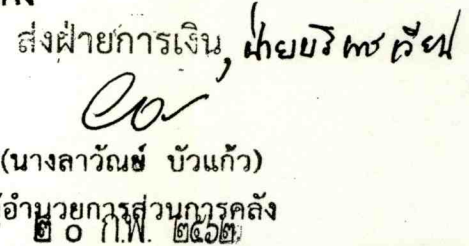 ส่งฝ่ายการเงิน, ฝ่ายบริหาร
(นางลาวัณย์ บัวแก้ว)
ผู้อำนวยการส่วนการคลัง
๒๐ ก.พ. ๒๕๖๒